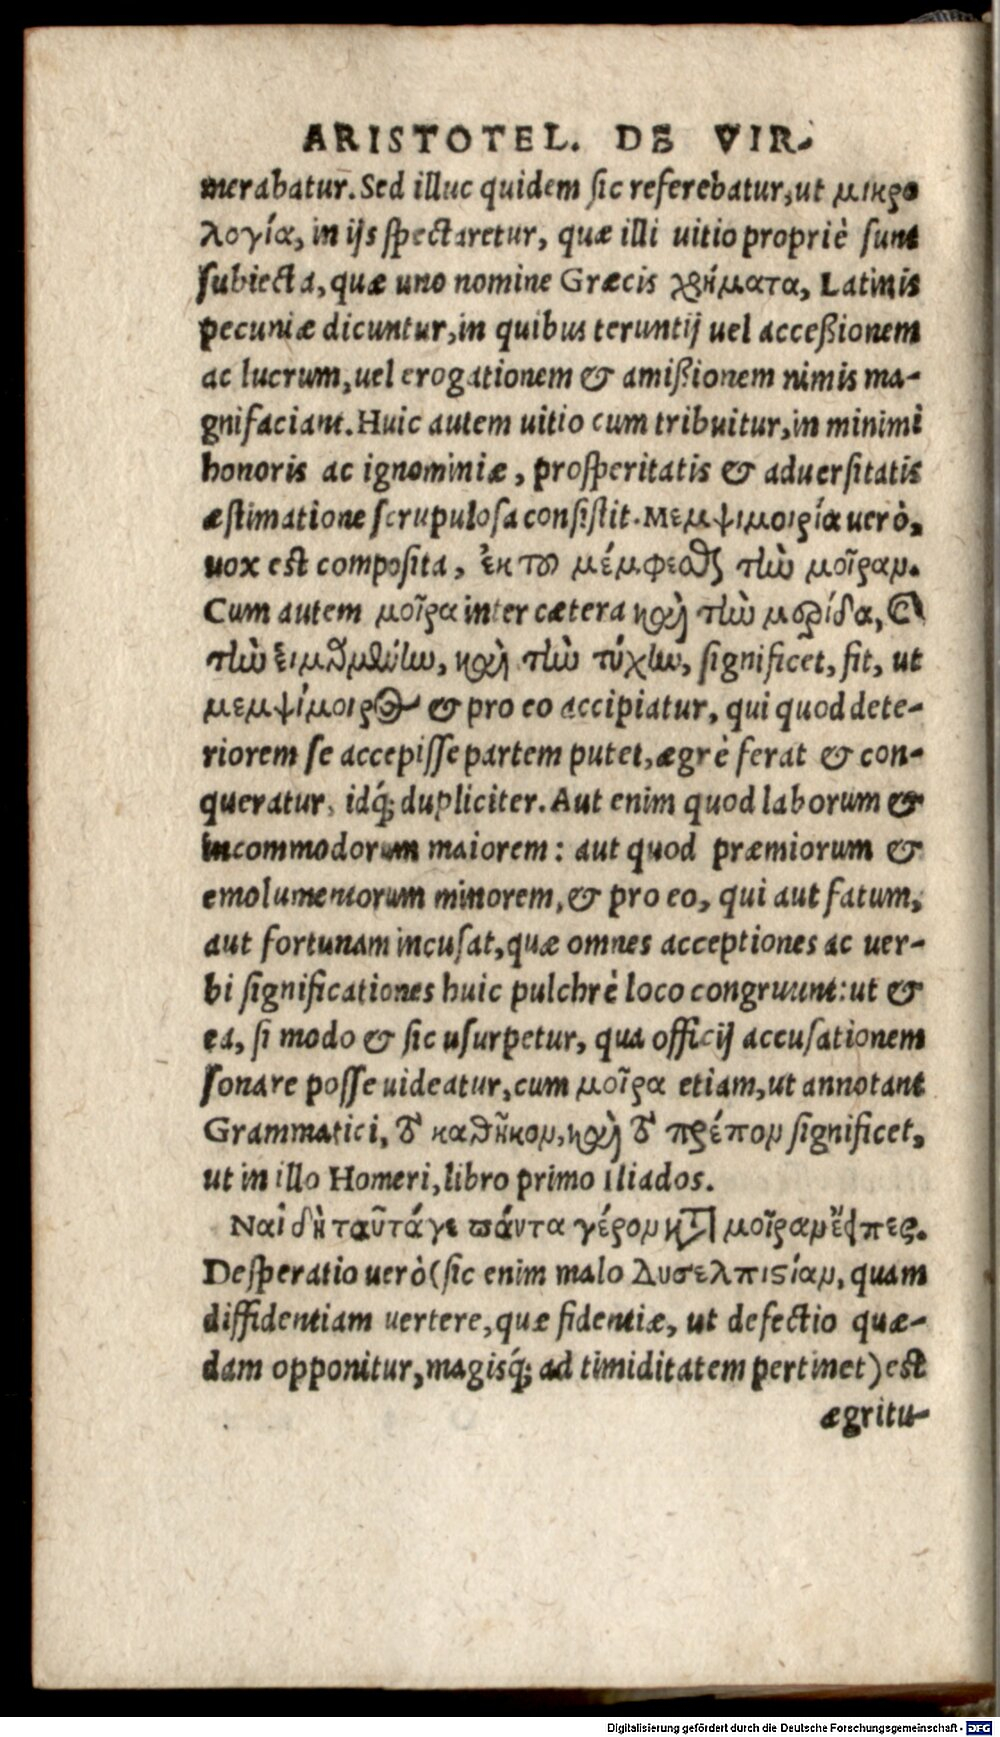 ARISTOTEL. DE VIR-
merabatur. Sed illuc quidem sic referebatur, ut μικρο
λογία, in ijs spectaretur, quæ illi uitio propriè sunt
subiecta, quæ uno nomine Græcis χρήματα, Latinis
pecuniæ dicuntur, in quibus teruntij uel accessionem
ac lucrum, uel erogationem & amissionem nimis ma-
gnifaciant. Huic autem uitio cum tribuitur, in minimi
honoris ac ignominiæ, prosperitatis & aduersitatis
æstimatione scrupulosa consistit. μεμψιμοιρία uerò,
uox est composita, ἐκ τοῦ μέμφεσθαι τὴν μοῖραν.
Cum autem μοῖρα inter cætera καὶ τὴν μερίδα, καὶ
τὴν εἱμαρμένην, καὶ τὴν τύχην, significet, fit, ut
μεμψίμοιρος & pro eo accipiatur, qui quod dete-
riorem se accepisse partem putet, ægrè ferat & con-
queratur, idq́; dupliciter. Aut enim quod laborum &
incommodorum maiorem: aut quod præmiorum &
emolumentorum minorem, & pro eo, qui aut fatum,
aut fortunam incusat, quæ omnes acceptiones ac uer-
bi significationes huic pulchrè loco congruunt: ut &
ea, si modo & sic usurpetur, qua officij accusationem
sonare posse uideatur, cum μοῖρα etiam, ut annotant
Grammatici, τὸ καθῆκον, καὶ τὸ πρέπον significet,
ut in illo Homeri, libro primo Iliados.
Ναὶ δὴ ταῦτά γε πάντα γέρον κατὰ μοῖραν ἔειπες.
Desperatio uerò (sic enim malo Δυσελπιστίαν, quam
diffidentiam uertere, quæ fidentiæ, ut defectio quæ-
dam opponitur, magisq́; ad timiditatem pertinet) est
ægritu-
Digitalisierung gefördert durch die Deutsche Forschungsgemeinschaft - DFG